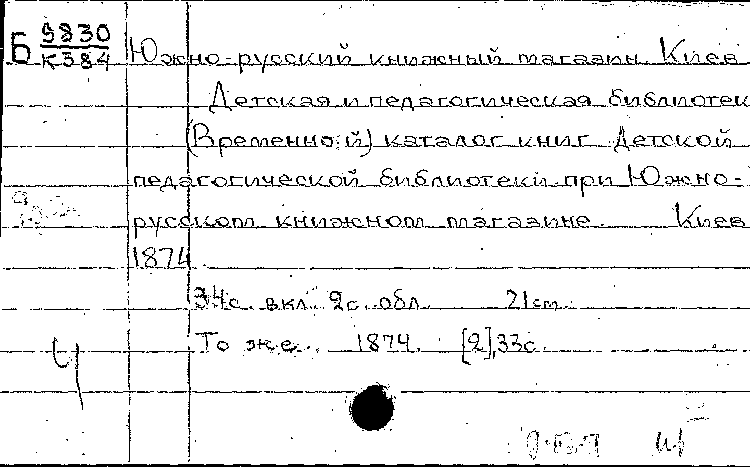 Б 9830
К384
Южно-русский книжный магазин. Киев
Детская и педагогическая библиотек
(Временной) каталог книг Детской
педагогической библиотеки при Южно-
русском книжном магазине. Киев
1874.
34с. вкл. 2с. обл. 21см.
То же. 1874. [2],33с.
Ч